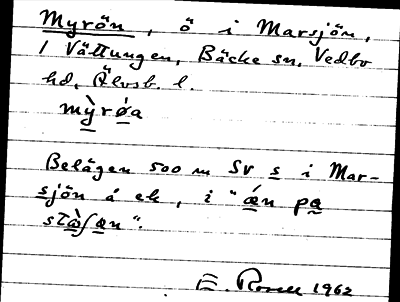 Myrön, ö i Marsjön,
1 Vättungen, Bäcke sn, Vedbo
hd, Älvsb. l.
mỳrǿa
Belägen 500 m SV s i Mar-
sjön å ek, i "ǽn pa
stàʃæn".
1962